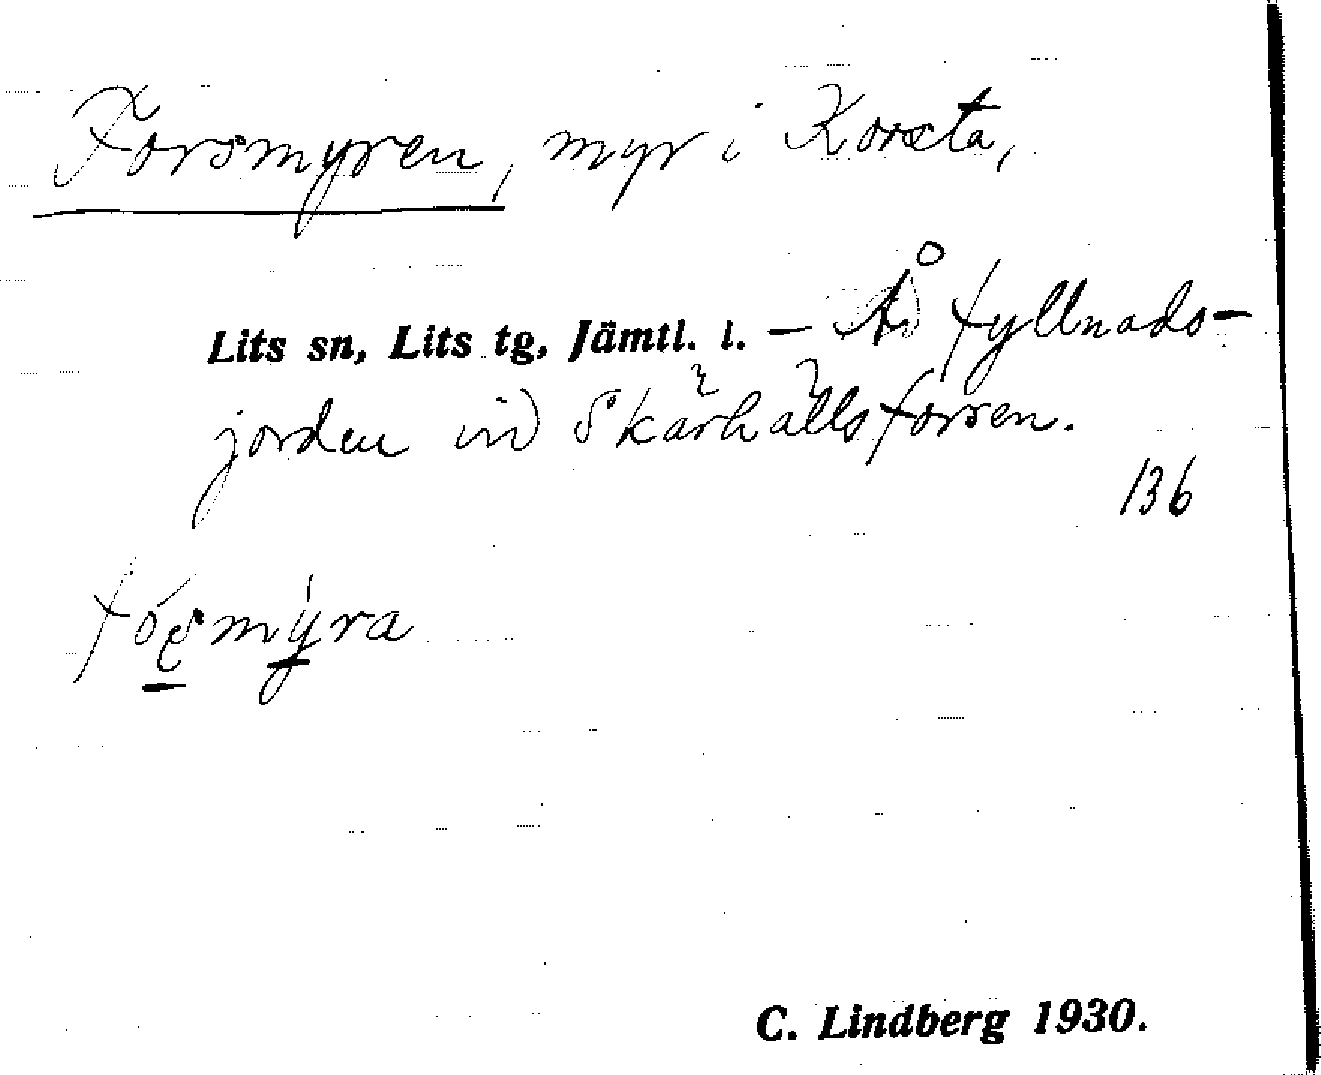 Forsmyren, myr i Korsta,
Lits sn, Lits tg, Jämtl. l. — Å fyllnads-
jorden vid Skärhällsforsen.
136
fósmýra
C. Lindberg 1930.